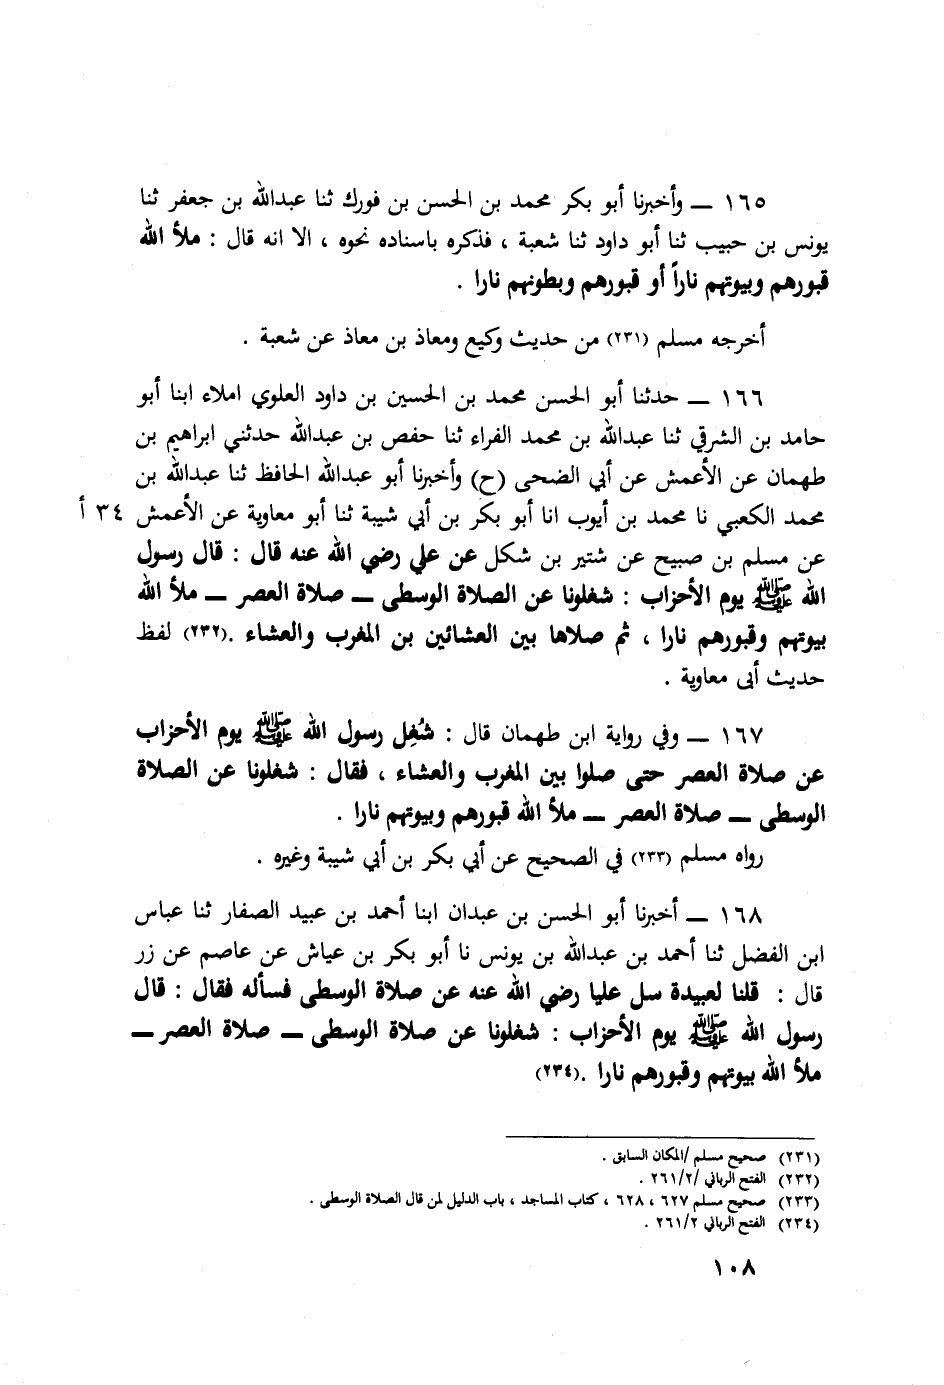 ١٦٥ ــ وأخبرنا أبو بكر محمد بن الحسن بن فورك ثنا عبدالله بن جعفر ثنا
يونس بن حبيب ثنا أبو داود ثنا شعبة ، فذكره باسناده نحوه ، الا انه قال : ملأ الله
قبورهم وبيوتهم ناراً أو قبورهم وبطونهم نارا .
أخرجه مسلم (٢٣١) من حديث وكيع ومعاذ بن معاذ عن شعبة .
١٦٦ ــ حدثنا أبو الحسن محمد بن الحسين بن داود العلوي املاء ابنا أبو
حامد بن الشرقي ثنا عبدالله بن محمد الفراء ثنا حفص بن عبدالله حدثني ابراهيم بن
طهمان عن الأعمش عن أبي الضحى (ح) وأخبرنا أبو عبدالله الحافظ ثنا عبدالله بن
محمد الكعبي نا محمد بن أيوب انا أبو بكر بن أبي شيبة ثنا أبو معاوية عن الأعمش ٣٤ أ
عن مسلم بن صبيح عن شتير بن شكل عن علي رضي الله عنه قال : قال رسول
الله ﷺ يوم الأحزاب : شغلونا عن الصلاة الوسطى ــ صلاة العصر ــ ملأ الله
بيوتهم وقبورهم نارا ، ثم صلاها بين العشائين بن المغرب والعشاء .(٢٣٢) لفظ
حديث أبى معاوية .
١٦٧ ــ وفي رواية ابن طهمان قال : شُغِل رسول الله ﷺ يوم الأحزاب
عن صلاة العصر حتى صلوا بين المغرب والعشاء ، فقال : شغلونا عن الصلاة
الوسطى ــ صلاة العصر ــ ملأ الله قبورهم وبيوتهم نارا .
رواه مسلم (٢٣٣) في الصحيح عن أبي بكر بن أبي شيبة وغيره .
١٦٨ ــ أخبرنا أبو الحسن بن عبدان ابنا أحمد بن عبيد الصفار ثنا عباس
ابن الفضل ثنا أحمد بن عبدالله بن يونس نا أبو بكر بن عياش عن عاصم عن زر
قال : قلنا لعبيدة سل عليا رضي الله عنه عن صلاة الوسطى فسأله فقال : قال
رسول الله ﷺ يوم الأحزاب : شغلونا عن صلاة الوسطى ــ صلاة العصر ــ
ملأ الله بيوتهم وقبورهم نارا .(٢٣٤)
(٢٣١) صحيح مسلم /المكان السابق .
(٢٣٢) الفتح الرباني /٢٦١/٢ .
(٢٣٣) صحيح مسلم ٦٢٧ ، ٦٢٨ ، كتاب المساجد ، باب الدليل لمن قال الصلاة الوسطى .
(٢٣٤) الفتح الرباني ٢٦١/٢ .
١٠٨